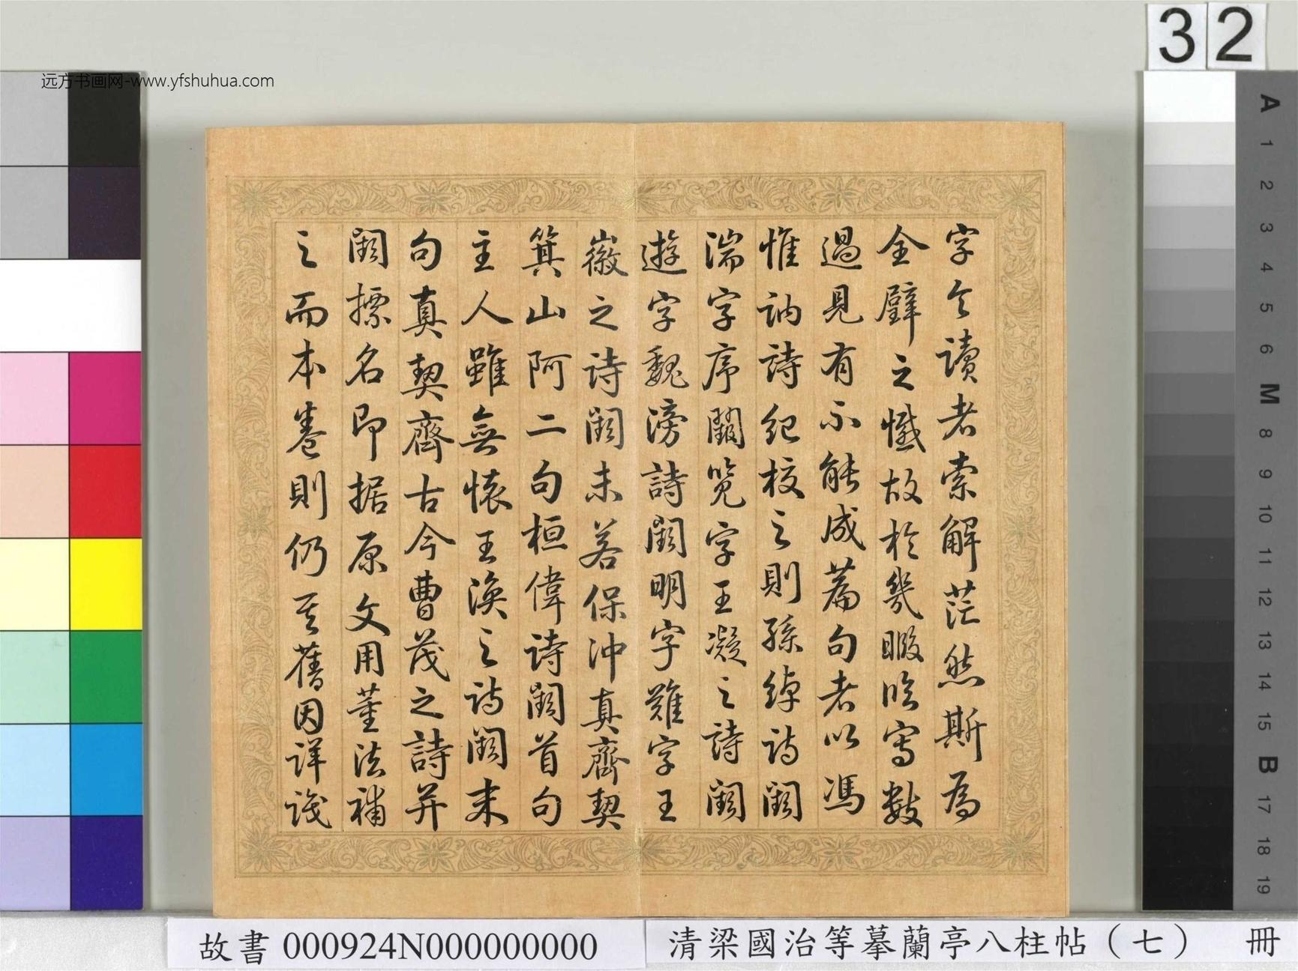 远方书画网-www.yfshuhua.com
32
字令讀者索解茫然斯為
全璧之憾故於幾暇臨寫數
過見有不能成篇句者以馮
惟訥詩紀校之則孫綽詩闕
湍字序闕覽字王凝之詩闕
遊字魏滂詩闕明字難字王
徽之詩闕未若保沖真齊契
箕山阿二句桓偉詩闕首句
主人雖無懷王渙之詩闕末
句真契齊古今曹茂之詩并
闕標名即据原文用董法補
之而本卷則仍其舊因詳識
A 1 2 3 4 5 6 M 8 9 10 11 12 13 14 15 B 17 18 19
故書 000924N000000000
清梁國治等摹蘭亭八柱帖（七） 冊